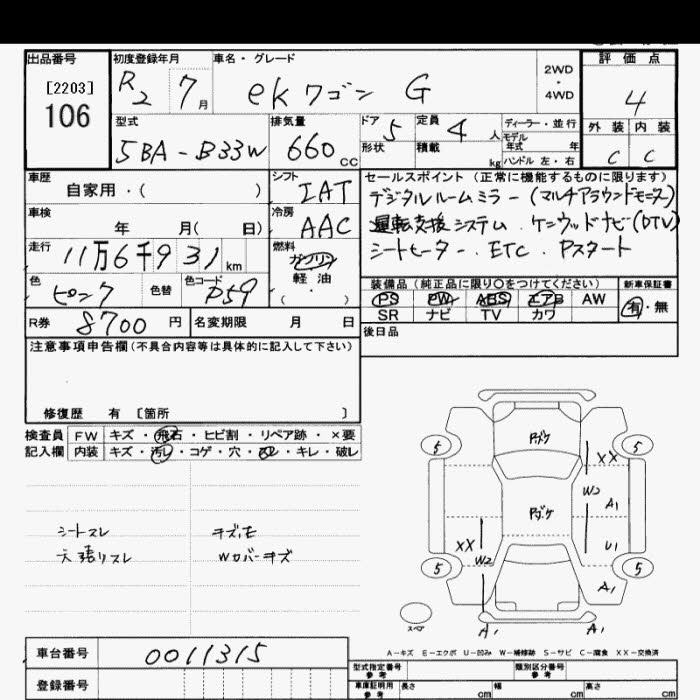 出品番号
[2203]
106
初度登録年月
R2 7月
車名・グレード
ekワゴン G
2WD
・
4WD
評価点
4
外装 内装
C C
型式
5BA-B33W
排気量
660cc
ドア
5
形状
定員
4人
積載
kg
ディーラー・並行
モデル
年式 年
ハンドル 左・右
車歴
自家用・( )
シフト
IAT
車検
年 月( 日)
冷房
AAC
走行
11万6千931km
燃料
ガソリン
軽油
( ・ )
色
ピンク
色替
色コード
P59
R券 8700円
名変期限 月 日
セールスポイント(正常に機能するものに限ります)
デジタルルームミラー・(マルチアラウンドモニター)
運転支援システム.ケンウッドナビ(DTV)
シートヒーター.ETC.Pスタート
装備品(純正品に限り○をつけてください)
新車保証書
PS PW ABS エアB AW
SR ナビ TV カワ
有・無
後日品
注意事項申告欄(不具合内容等は具体的に記入して下さい)
修復歴 有 [箇所 ]
検査員
記入欄
FW キズ・飛石・ヒビ割・リペア跡・×要
内装 キズ・汚レ・コゲ・穴・スレ・キレ・破レ
シートスレ
天張リスレ
キズ、モ
Wカバーキズ
Pダケ
Pダケ
5
5
5
5
XX
W2
A1
U1
A1
XX
W2
A1
A1
スペア
A-キズ E-エクボ U-凹み W-補修跡 S-サビ C-腐食 XX-交換済
車台番号
0011315
登録番号
型式指定番号
参考
類別区分番号
参考
車庫証明用
参考
長さ cm
幅 cm
高さ cm